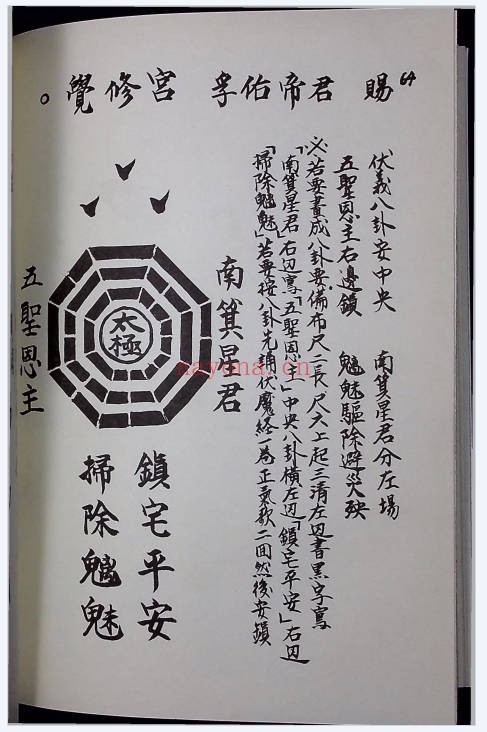 64
覺修宮 孚佑帝君 賜
伏羲八卦安中央 南箕星君分左場
五聖恩主右邊鎮 魑魅驅除避災殃
※若要畫成八卦要備布尺二長尺六上起三清左边書黑字寫
「南箕星君」右边寫「五聖恩主」中央八卦橫左边「鎮宅平安」右边
「掃除魑魅」若要按八卦先誦伏魔経一卷正氣歌二回然後安鎮
南箕星君
太極
五聖恩主
鎮宅平安
掃除魑魅
nayima.cn